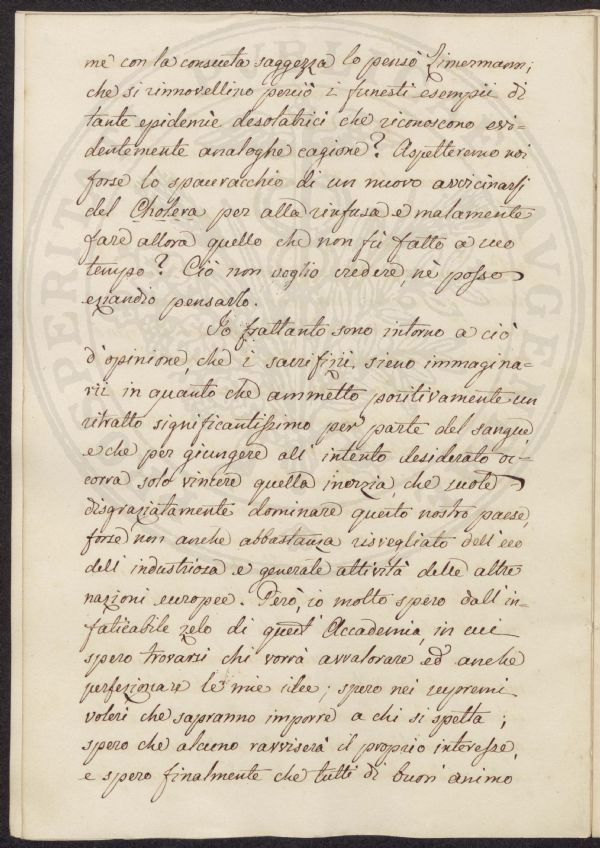 me con la consueta saggezza lo pensò Zimermann;
che si rinnovellino perciò i funesti esempii di
tante epidemie desolatrici che riconoscono evi=
dentemente analoghe cagione? Aspetteremo noi
forse lo spauracchio di un nuovo avvicinarsi
del Cholera per alla rinfusa e malamente
fare allora quello che non fù fatto a suo
tempo? Ciò non voglio credere, nè posso
eziandio pensarlo.
Io frattanto sono intorno a ciò
d'opinione, che i sacrifizii sieno immagina=
rii in quanto che ammetto positivamente un
ritratto significantissimo per parte del sangue,
e che per giungere all'intento desiderato oc=
corra solo vincere quella inerzia, che suole
disgraziatamente dominare questo nostro paese,
forse non anche abbastanza risvegliato dell'eco
dell'industriosa e generale attività delle altre
nazioni europee. Però, io molto spero dall'in=
faticabile zelo di quest'Accademia, in cui
spero trovarsi chi vorrà avvalorare ed anche
perfezionare le mie idee; spero nei supremi
voleri che sapranno imporre a chi si spetta;
spero che alcuno ravviserà il proprio interesse,
e spero finalmente che tutti di buon animo